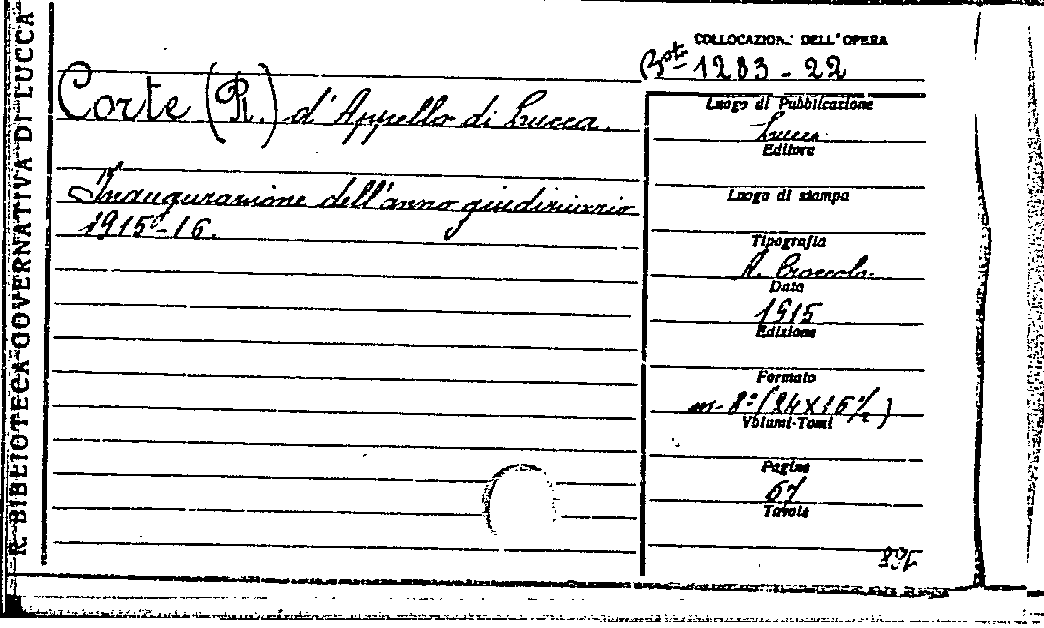 R. BIBLIOTECA GOVERNATIVA DI LUCCA
COLLOCAZION. DELL'OPERA
1283 - 22
Corte (R.) d'Appello di Lucca.
Inaugurazione dell'anno giudiziario
1915-16.
Luogo di Pubblicazione
Lucca
Editore
Luogo di stampa
Tipografia
A.
Data
1915
Edizione
Formato
in-8° (24X16½)
Volumi-Tomi
Pagine
67
Tavole